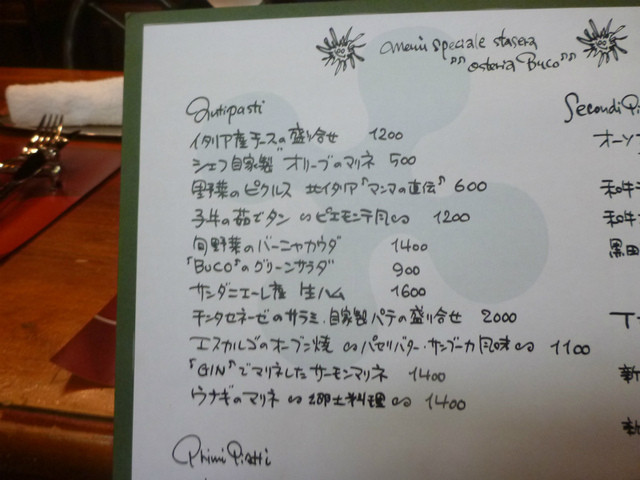 menù speciale stasera
"osteria Buco"
Antipasti
イタリア産チーズの盛り合せ 1200
シェフ自家製 オリーブのマリネ 500
野菜のピクルス 北イタリア「マンマの直伝」 600
子牛の茹でタン ∽ピエモンテ風∽ 1200
旬野菜のバーニャカウダ 1400
「BUCO」のグリーンサラダ 900
サンダニエーレ産 生ハム 1600
チンタセネーゼのサラミ・自家製パテの盛り合せ 2000
エスカルゴのオーブン焼 ∽パセリバター・サンブーカ風味∽ 1100
「GIN」でマリネしたサーモンマリネ 1400
ウナギのマリネ ∽郷土料理∽ 1400
Primi Piatti
Secondi Pi
オーソブ
和牛
和牛
黒田
T-
新